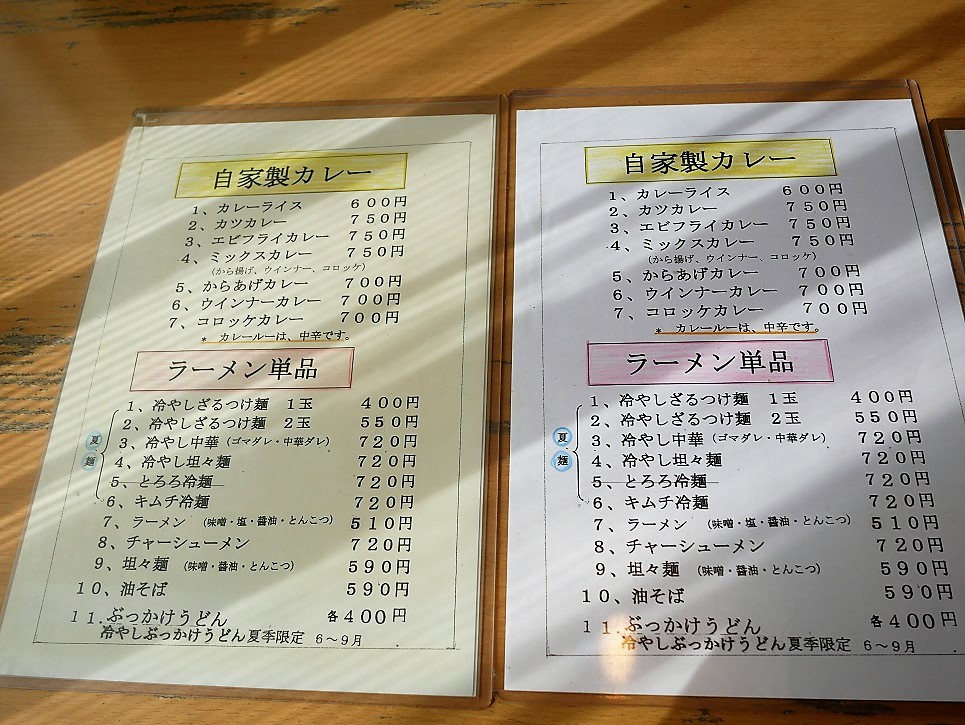 自家製カレー
1、カレーライス 600円
2、カツカレー 750円
3、エビフライカレー 750円
4、ミックスカレー 750円
(から揚げ、ウインナー、コロッケ)
5、からあげカレー 700円
6、ウインナーカレー 700円
7、コロッケカレー 700円
* カレールーは、中辛です。
ラーメン単品
夏麺
1、冷やしざるつけ麺 1玉 400円
2、冷やしざるつけ麺 2玉 550円
3、冷やし中華(ゴマダレ・中華ダレ) 720円
4、冷やし坦々麺 720円
5、とろろ冷麺 720円
6、キムチ冷麺 720円
7、ラーメン (味噌・塩・醤油・とんこつ) 510円
8、チャーシューメン 720円
9、坦々麺 (味噌・醤油・とんこつ) 590円
10、油そば 590円
11.ぶっかけうどん 各400円
冷やしぶっかけうどん夏季限定 6~9月
自家製カレー
1、カレーライス 600円
2、カツカレー 750円
3、エビフライカレー 750円
4、ミックスカレー 750円
(から揚げ、ウインナー、コロッケ)
5、からあげカレー 700円
6、ウインナーカレー 700円
7、コロッケカレー 700円
* カレールーは、中辛です。
ラーメン単品
夏麺
1、冷やしざるつけ麺 1玉 400円
2、冷やしざるつけ麺 2玉 550円
3、冷やし中華(ゴマダレ・中華ダレ) 720円
4、冷やし坦々麺 720円
5、とろろ冷麺 720円
6、キムチ冷麺 720円
7、ラーメン (味噌・塩・醤油・とんこつ) 510円
8、チャーシューメン 720円
9、坦々麺 (味噌・醤油・とんこつ) 590円
10、油そば 590円
11.ぶっかけうどん 各400円
冷やしぶっかけうどん夏季限定 6~9月